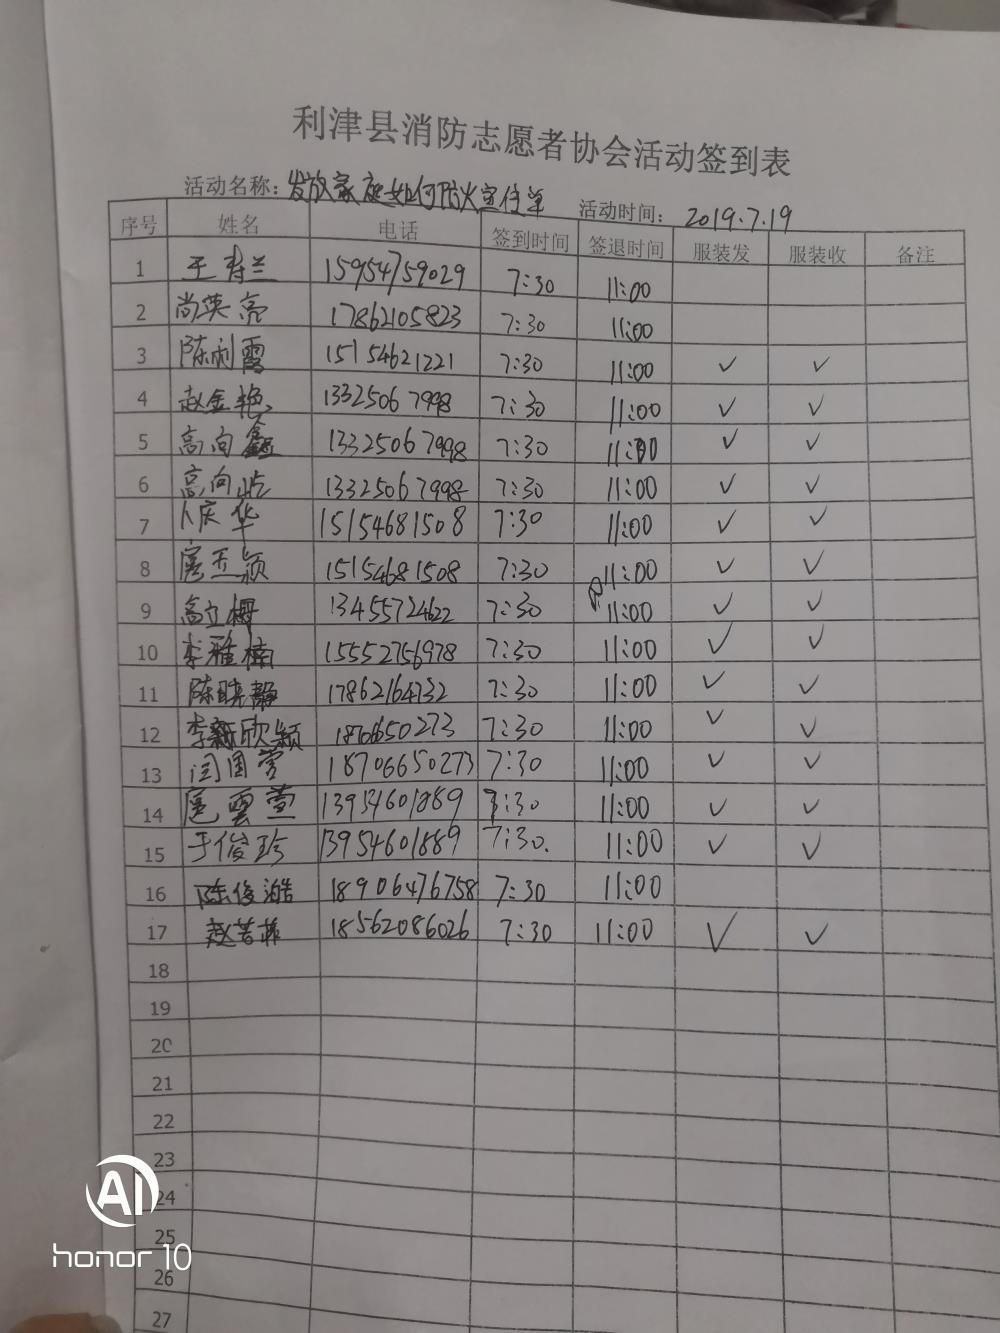 利津县消防志愿者协会活动签到表
活动名称：发放家庭如何防火宣传单 活动时间：2019.7.19
序号 姓名 电话 签到时间 签退时间 服装发 服装收 备注
1 王寿兰 15954759029 7:30 11:00
2 尚英亮 17862105823 7:30 11:00
3 陈利霞 15154621221 7:30 11:00 ✓ ✓
4 赵金艳 13325067998 7:30 11:00 ✓ ✓
5 高向鑫 13325067998 7:30 11:00 ✓ ✓
6 高向屹 13325067998 7:30 11:00 ✓ ✓
7 卜庆华 15154681508 7:30 11:00 ✓ ✓
8 扈玉颖 15154681508 7:30 11:00 ✓ ✓
9 高立柵 13455724622 7:30 11:00 ✓ ✓
10 李雅楠 15552756978 7:30 11:00 ✓ ✓
11 陈晓静 17862164732 7:30 11:00 ✓ ✓
12 李新欣颖 1870650273 7:30 11:00 ✓ ✓
13 闫国萱 18706650273 7:30 11:00 ✓ ✓
14 扈雲萱 13954601889 7:30 11:00 ✓ ✓
15 于俊珍 13954601889 7:30. 11:00 ✓ ✓
16 陈俊澔 18906476758 7:30 11:00
17 赵若菲 18562086026 7:30 11:00 ✓ ✓
18
19
20
21
22
23
24
25
26
27
AI
honor 10